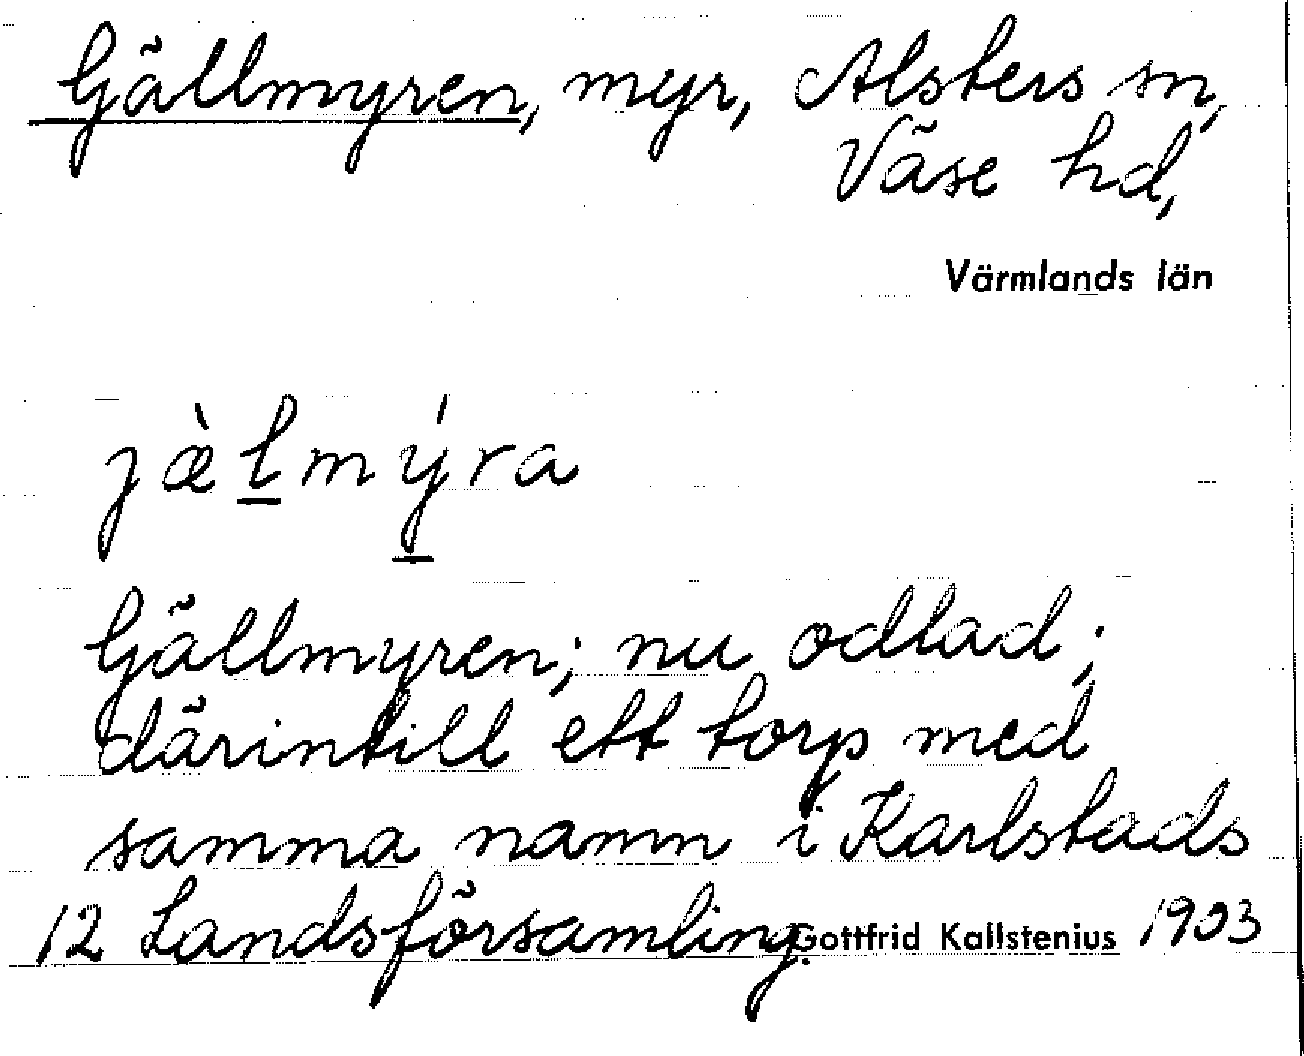 Gällmyren, myr, Alsters sn,
Väse hd,
Värmlands län
jæ̀l̲mý̲ra
Gällmyren; nu odlad;
därintill ett torp med
samma namn i Karlstads
12 Landsförsamling. Gottfrid Kallstenius 1903